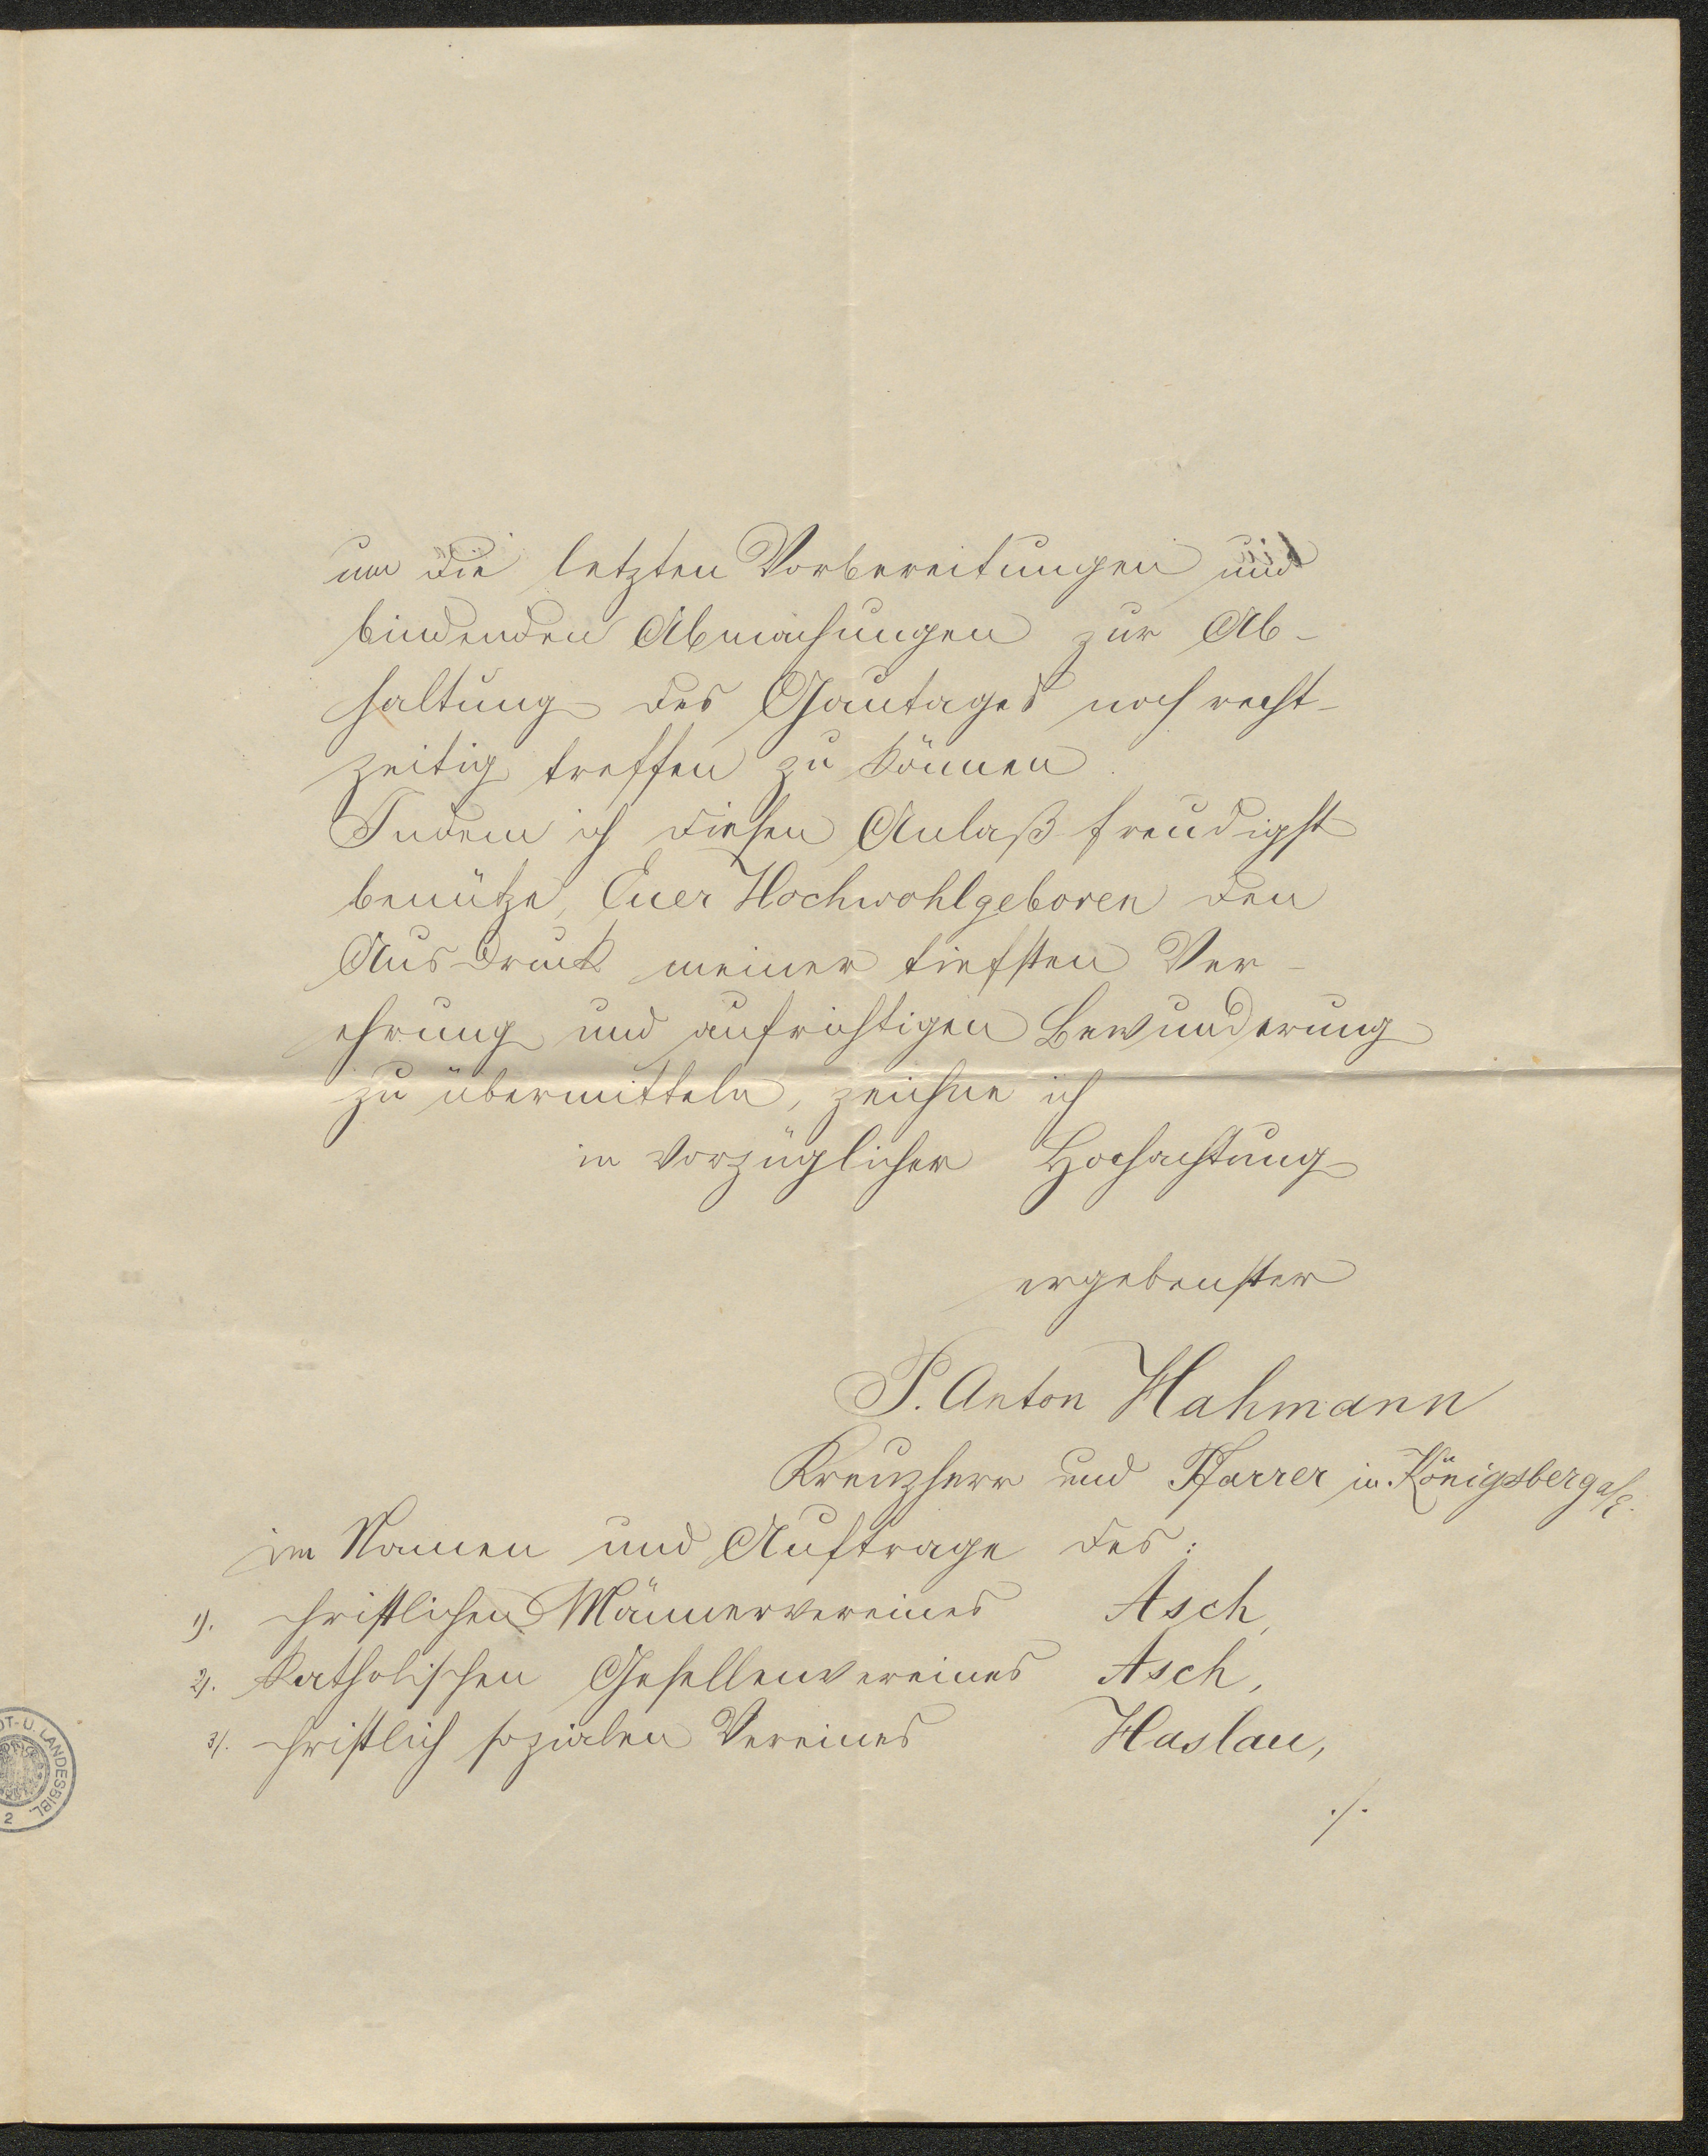 um die letzten Vorbereitungen und
bindenden Abmachungen zur Ab-
haltung des Gautages noch recht-
zeitig treffen zu können.
Indem ich diesen Anlaß freudigst
benütze, Euer Hochwohlgeboren den
Ausdruck meiner tiefsten Ver-
ehrung und aufrichtigen Bewunderung
zu übermitteln, zeichne ich
in vorzüglicher Hochachtung
ergebenster
P. Anton Hahmann
Kreuzherr und Pfarrer in Königsberg a/E.
im Namen und Auftrage des:
1). christlichen Männervereines Asch,
2). Katholischen Gesellenvereines Asch,
3). christlich sozialen Vereines Haslau,
./.
DT- U. LANDESBIBL.
2